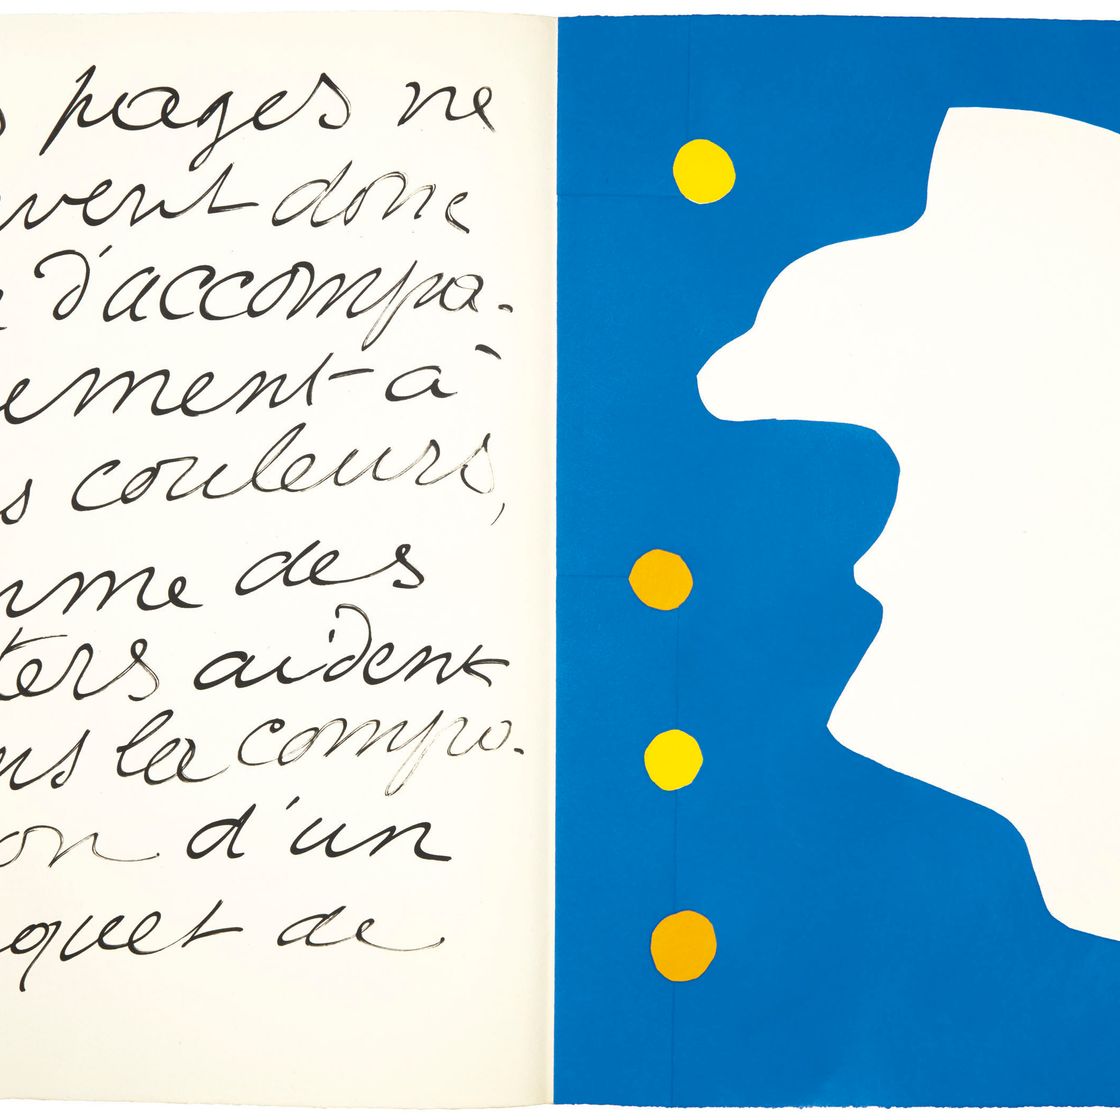 s pages ne
uvent donc
e d'accompa-
ement à
s couleurs,
mme des
ters aident
ns la compo-
on d'un
quet de